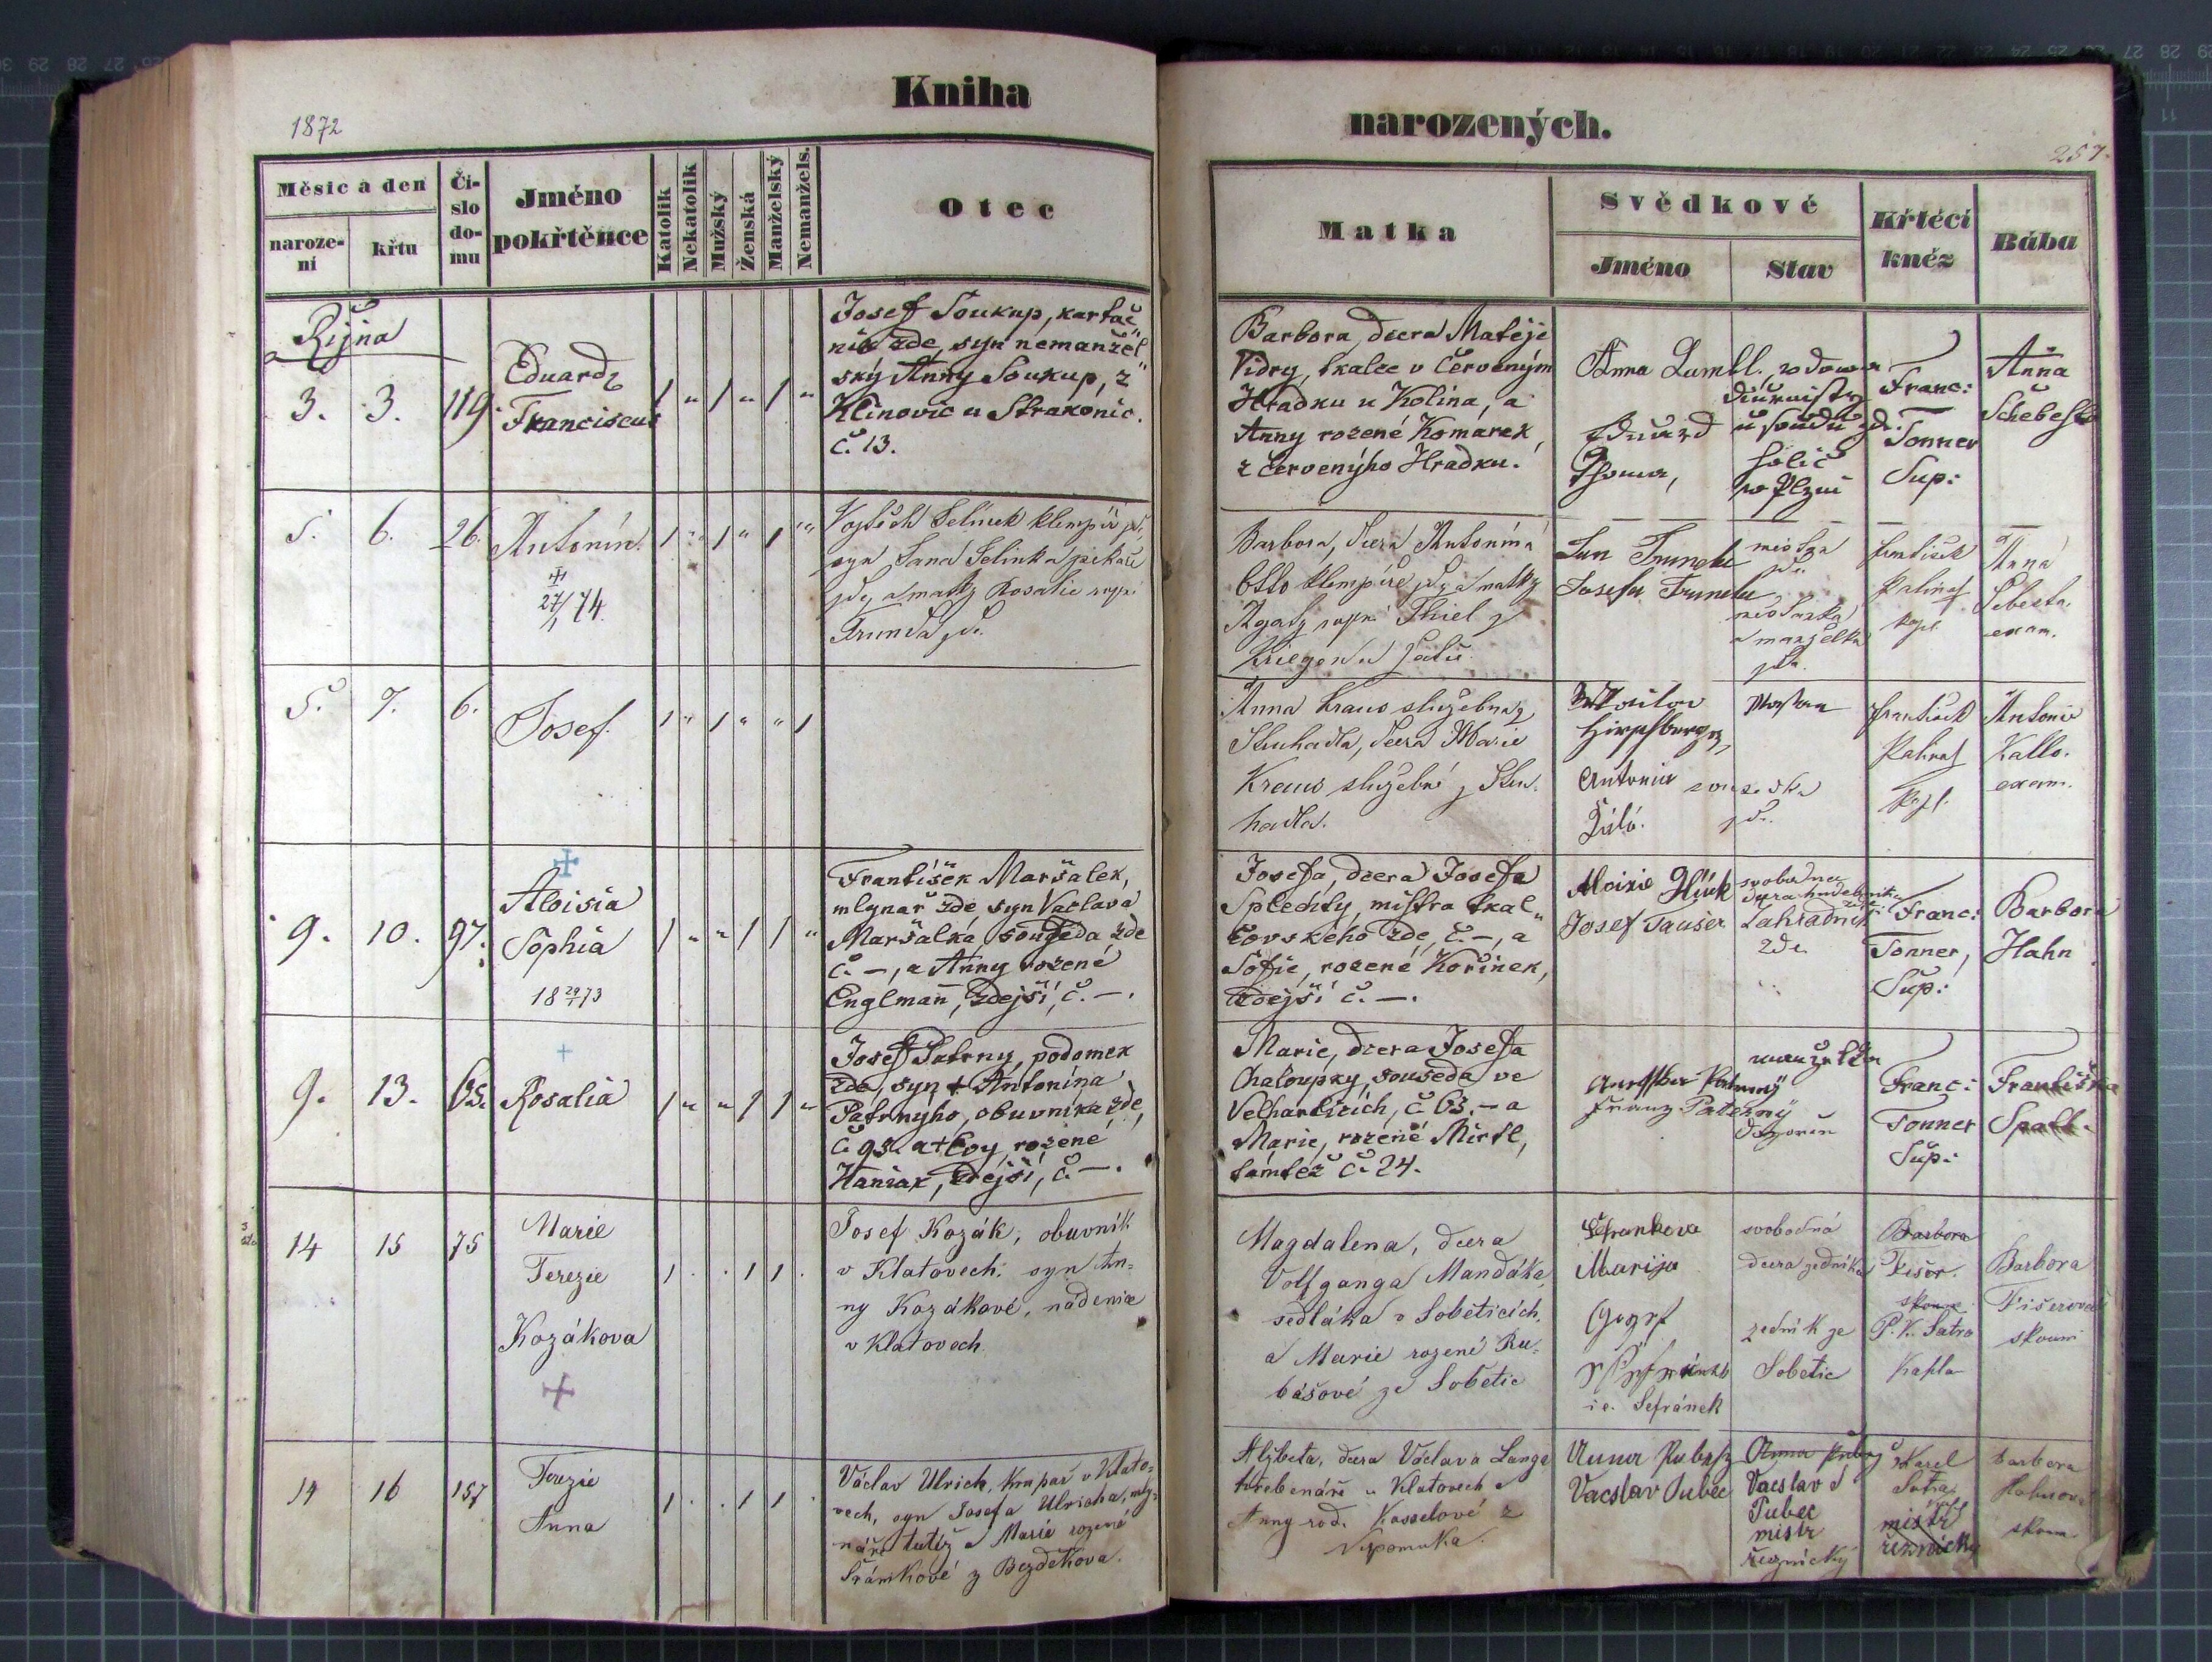 1872
Kniha
narozených.
257.
Měsíc a den
naroze-
ní
křtu
Čí-
slo
do-
mu
Jméno
pokřtěnce
Katolík
Nekatolík
Mužský
Ženská
Manželský
Nemanžels.
Otec
Matka
Svědkové
Jméno
Stav
Křtící
kněz
Bába
Října
3. 3. 119.
Eduard
Franciscus
Josef Soukup, kartáč
ník zde, syn nemanžel
ský Anny Soukup, z
Klínovic u Strakonic.
č. 13.
Barbora, dcera Matěje
Vidry, tkalce v Červeným
Hrádku u Kolína, a
Anny rozené Komarek,
z Červenýho Hradku.
Anna vdowa
Eduard
Thoma,
u soudu zd.
holič
w Plzni
Franc:
Tonner
Sup:
Anna
Schebest
5. 6. 26.
Antonín.
27/1 74.
Vojtěch Selinek klempíř zd.,
syn Jana Selinka pekaře
zde, a matky Rosalie
Trunda zd.
Barbora, dcera Antonína
Otto klempíře zdy a matky
Agaty Thiel z
Josefa
měšťan
zde.
a manželka
zde.
František
kapl.
Anna
Šebesta.
exam.
5. 7. 6.
Josef.
Anna Kraus služebná z
Štuhadla, dcera Marie
Kraus služebné z Štu-
hadla.
Antonia sousedka
zde.
František
kapl.
Antonie
Kallo.
exam.
9. 10. 97.
Aloisia
Sophia
18 29/1 73
František Maršalek,
mlynař zde, syn Vaclava
Maršalka, souseda zde
č. –, a Anny rozené
Englmann, zdejší, č. –.
Josefa, dcera Josefa
Splechty, mistra tkal„
covského zde, č. –, a
Sofie, rozené Kořinek,
zdejší č. –.
Aloisie Glück
Josef Tauser
svobodna
dcera hudebníka
zde
Zahradník
zde.
Franc:
Tonner,
Sup:
Barbora
Hahn
9. 13. 63.
Rosalia
Josef Paterny, podomek
zde, syn + Antonína
Paternyho, obuvníka zde,
č. 95. a + Evy, rozené
Haniak, zdejší, č. –.
Marie, dcera Josefa
Chaloupky, souseda ve
Velharticích, č. 63. – a
Marie, rozené Mirtl,
tamtéž č. 24.
manželka
Franz Paterný
Franc:
Tonner
Sup:
Františka
Spatt.
14 15 75
Marie
Terezie
Kozákova
Josef Kozák, obuvník
v Klatovech, syn An-
ny Kozákové, nádenice
v Klatovech.
Magdalena, dcera
Volfganga Mandáka,
sedláka v Sobětících,
a Marie rozené Ru-
bášové ze Sobětic
Marija
i.e. Šefránek
svobodná
dcera zedníka
zedník ze
Sobětic
Barbora
Fišer.
P. K. Šatra
Kaplan
Barbora
Fišerová
zkoum
14 16 157
Terezie
Anna
Václav Ulrich, krupař v Klato-
vech, syn Josefa Ulricha, mly-
náře tutéž a Marie rozené
Šrámkové z Bezděkova.
Alžběta, dcera Václava Langa
hřebenáře v Klatovech a
Anny rod. Kasselové z
Nepomuka.
Anna
Vacslav Pubec
Vacslav
Pubec
mistr
řeznický
Karel
Šatra
mistr
řeznický
Barbora
Hahnova
zkoum